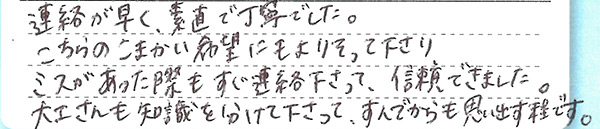 連絡が早く、素直で丁寧でした。
こちらのこまかい希望にもよりそって下さり
ミスがあった際もすぐ連絡下さって、信頼できました。
大工さんも知識を分けて下さって、すんでからも思い出す程です。